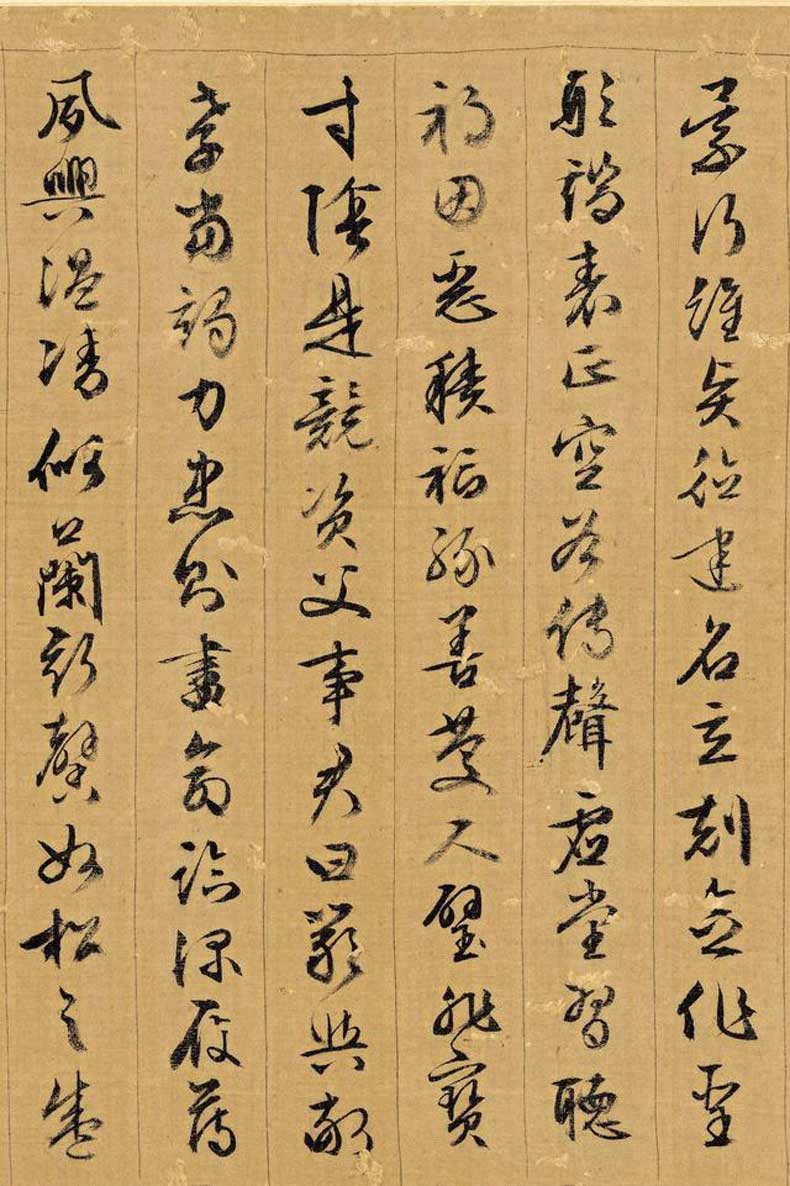 景行維賢德建名立剋念作聖
形端表正空谷傳聲虛堂習聽
禍因惡積福緣善慶尺璧非寶
寸陰是競資父事君曰嚴與敬
孝當竭力忠則盡命臨深履薄
夙興溫凊似蘭斯馨如松之盛